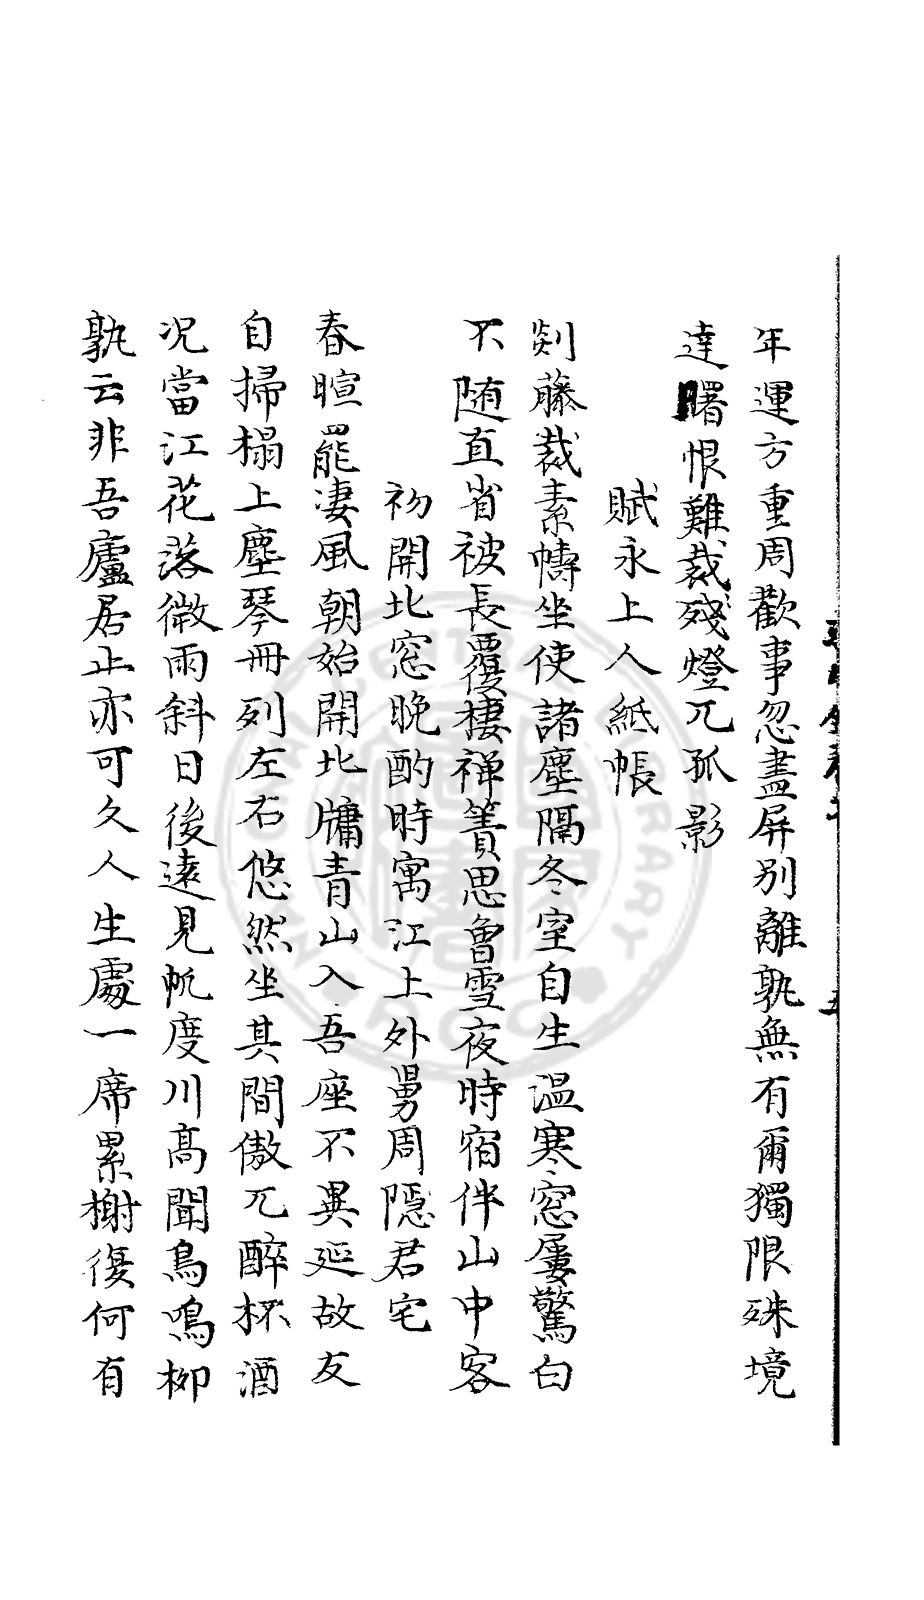 年運方重周歡事忽盡屏别離孰無有爾獨限殊境
達曙恨難裁殘燈兀孤影
賦永上人紙帳
剡藤裁素幬坐使諸塵隔冬室自生温寒窓屢驚白
不随直省被長覆棲禅簀思魯雪夜時宿伴山中客
初開北窓晚酌時寓江上外舅周隠君宅
春暄罷凄風朝始開北牗青山入吾座不異延故友
自掃榻上塵琴冊列左右悠然坐其間傲兀醉杯酒
况當江花落微雨斜日後遠見帆度川高聞鳥鳴栁
孰云非吾廬居止亦可久人生處一席累榭復何有